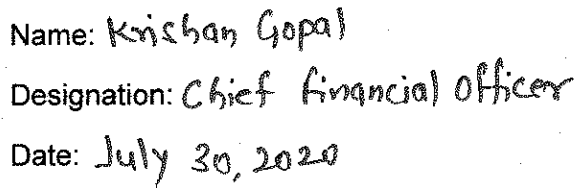 Name: Krishan Gopal
Designation: Chief financial officer
Date: July 30, 2020